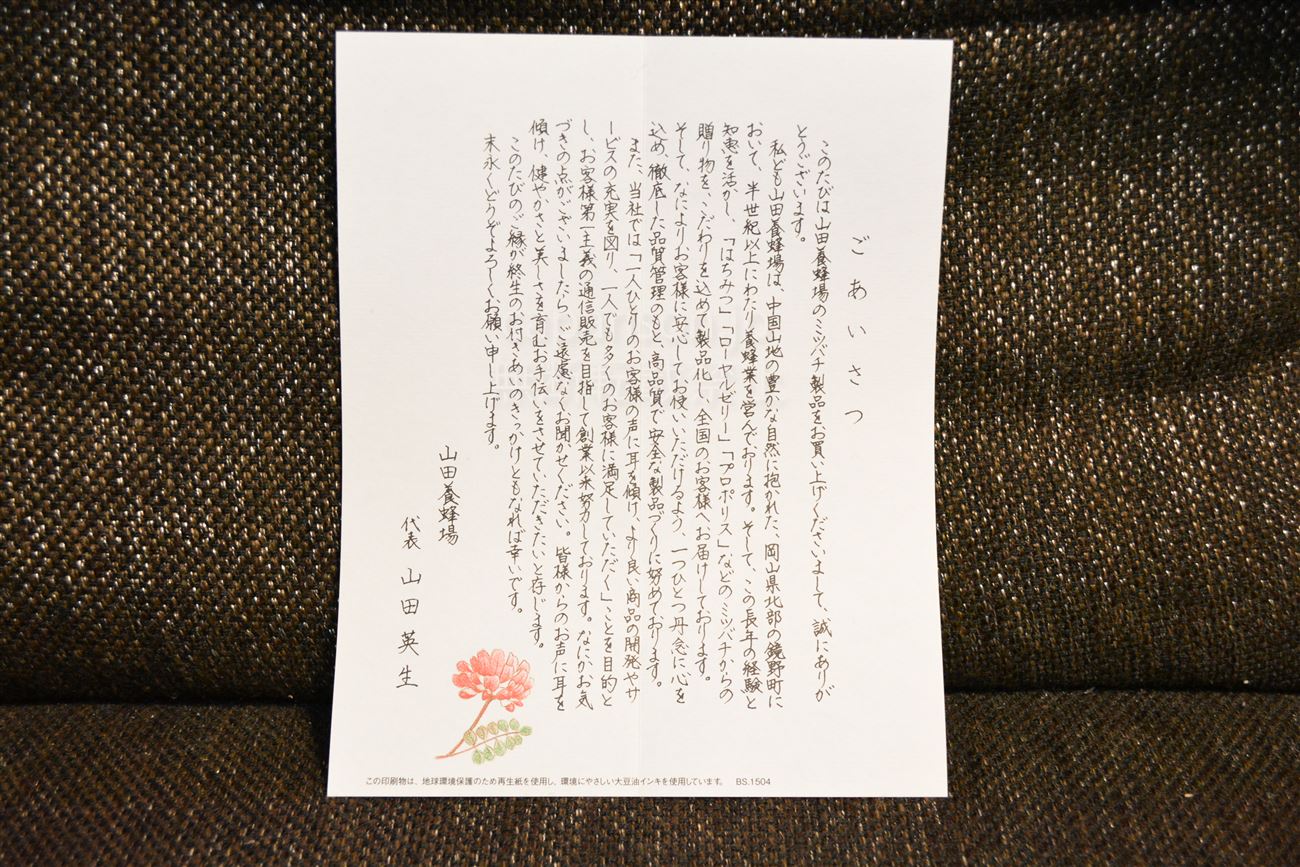 ごあいさつ
このたびは山田養蜂場のミツバチ製品をお買い上げくださいまして、誠にありが
とうございます。
私ども山田養蜂場は、中国山地の豊かな自然に抱かれた、岡山県北部の鏡野町に
おいて、半世紀以上にわたり養蜂業を営んでおります。そして、この長年の経験と
知恵を活かし、「はちみつ」「ローヤルゼリー」「プロポリス」などのミツバチからの
贈り物を、こだわりを込めて製品化し、全国のお客様へお届けしております。
そして、なによりお客様に安心してお使いいただけるよう、一つひとつ丹念に心を
込め、徹底した品質管理のもと、高品質で安全な製品づくりに努めております。
また、当社では「一人ひとりのお客様の声に耳を傾け、より良い商品の開発やサ
ービスの充実を図り、一人でも多くのお客様に満足していただく」ことを目的と
し、お客様第一主義の通信販売を目指して創業以来努力しております。なにかお気
づきの点がございましたら、ご遠慮なくお聞かせください。皆様からのお声に耳を
傾け、健やかさと美しさを育むお手伝いをさせていただきたいと存じます。
このたびのご縁が終生のお付きあいのきっかけともなれば幸いです。
末永くどうぞよろしくお願い申し上げます。
山田養蜂場
代表 山田英生
この印刷物は、地球環境保護のため再生紙を使用し、環境にやさしい大豆油インキを使用しています。 BS.1504